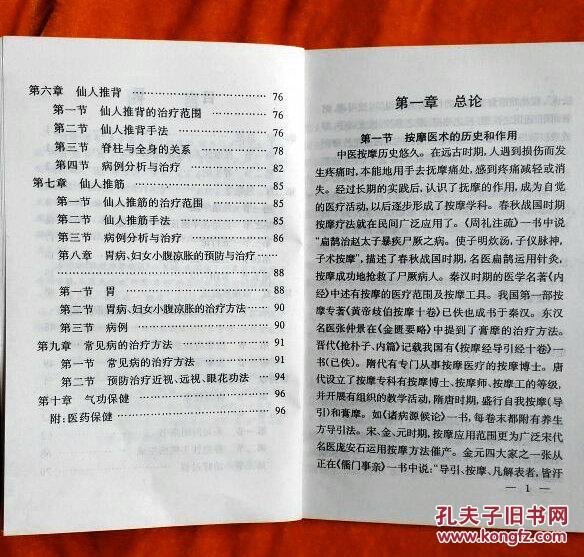 第六章 仙人推背 …………………… 76
第一节 仙人推背的治疗范围 …………… 76
第二节 仙人推背手法 …………………… 76
第三节 脊柱与全身的关系 ……………… 78
第四节 病例分析与治疗 ………………… 82
第七章 仙人推筋 …………………… 85
第一节 仙人推筋的治疗范围 …………… 85
第二节 仙人推筋手法 …………………… 85
第三节 病例分析与治疗 ………………… 86
第八章 胃病、妇女小腹凉胀的预防与治疗 ……
…………………………………… 88
第一节 胃 ……………………………… 88
第二节 胃病、妇女小腹凉胀的治疗方法 … 90
第三节 病例 …………………………… 90
第九章 常见病的治疗方法 ……………… 91
第一节 常见病的治疗方法 ……………… 91
第二节 预防治疗近视、远视、眼花功法 …… 94
第十章 气功保健 …………………… 96
附:医药保健 …………………… 96
第一章 总论
第一节 按摩医术的历史和作用
中医按摩历史悠久。在远古时期,人遇到损伤而发
生疼痛时,本能地用手去抚摩痛处,感到疼痛减轻或消
失。经过长期的实践后,认识了抚摩的作用,成为自觉
的医疗活动,以后逐步形成了按摩学科。春秋战国时期
按摩疗法就在民间广泛应用了。《周礼注疏》一书中说
“扁鹊治赵太子暴疾尸厥之病。使子明炊汤,子仪脉神,
子术按摩”,描述了春秋战国时期,名医扁鹊运用针灸、
按摩成功地抢救了尸厥病人。秦汉时期的医学名著《内
经》中述有按摩的医疗范围及按摩工具。我国第一部按
摩专著《黄帝歧伯按摩十卷》已佚也成书于秦汉。东汉
名医张仲景在《金匮要略》中提到了膏摩的治疗方法。
晋代《抢朴子、内篇》记载我国有《按摩经导引经十卷》一
书(已佚)。隋代有专门从事按摩医疗的按摩博士。唐
代设立了按摩专科有按摩博士、按摩师、按摩工的等级,
并开展有组织的教学活动,隋唐时期,盛行自我按摩(导
引)和膏摩。如《诸病源候论》一书,每卷末都附有养生
方导引法。宋、金、元时期,按摩应用范围更为广泛宋代
名医庞安石运用按摩方法催产。金元四大家之一张从
正在《儒门事亲》一书中说:“导引、按摩、凡解表者,皆汗
— 1 —
孔夫子旧书网